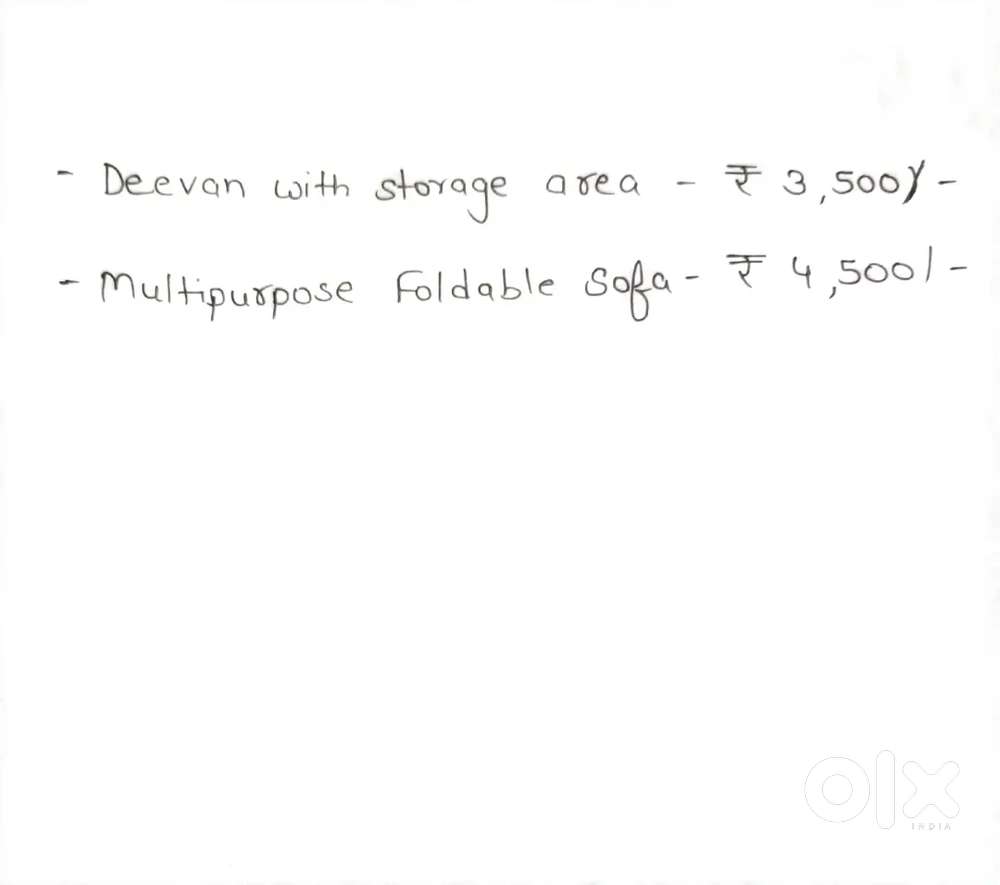 - Deevan with storage area - ₹ 3,500/-
- Multipurpose Foldable Sofa - ₹ 4,500/-
olx
INDIA